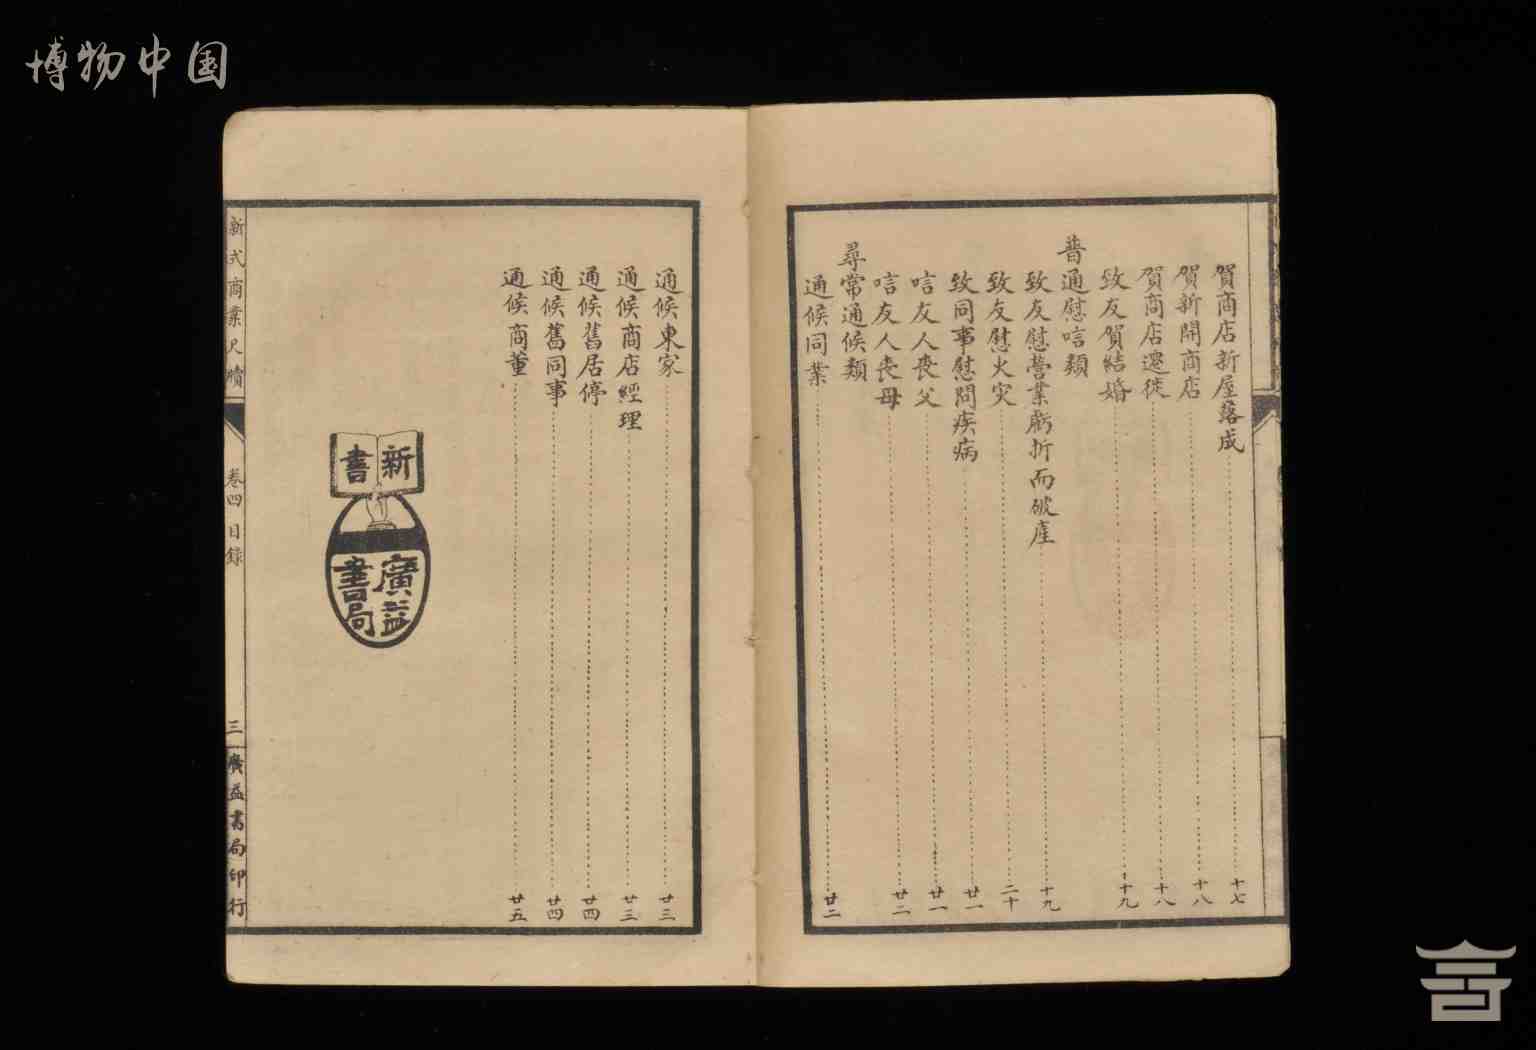 博物中国
賀商店新屋落成 十七
賀新開商店 十八
賀商店遷徙 十八
致友賀結婚 十九
普通慰唁類
致友慰營業虧折而破產 十九
致友慰火災 二十
致同事慰問疾病 廿一
唁友人喪父 廿一
唁友人喪母 廿二
尋常通候類
通候同業 廿二
通候東家 廿三
通候商店經理 廿三
通候舊居停 廿四
通候舊同事 廿四
通候商董 廿五
新書
廣益書局
新式商業尺牘
卷四 目錄
三
廣益書局印行